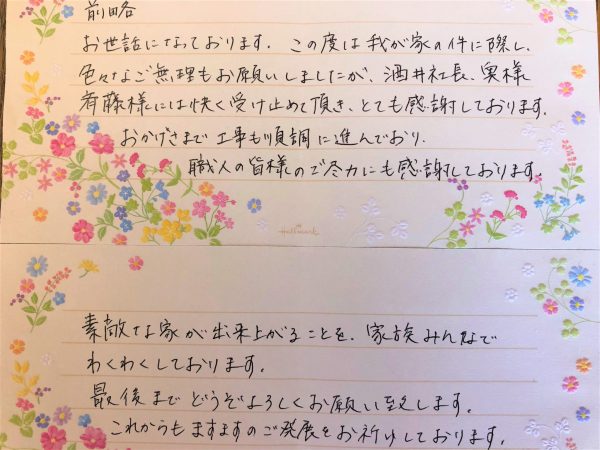 前略
お世話になっております。この度は我が家の件に際し、
色々なご無理もお願いしましたが、酒井社長、奥様
斉藤様には快く受け止めて頂き、とても感謝しております。
おかげさまで工事も順調に進んでおり、
職人の皆様のご尽力にも感謝しております。
Hallmark
素敵な家が出来上がることを、家族みんなで
わくわくしております。
最後までどうぞよろしくお願い致します。
これからもますますのご発展をお祈りしております。